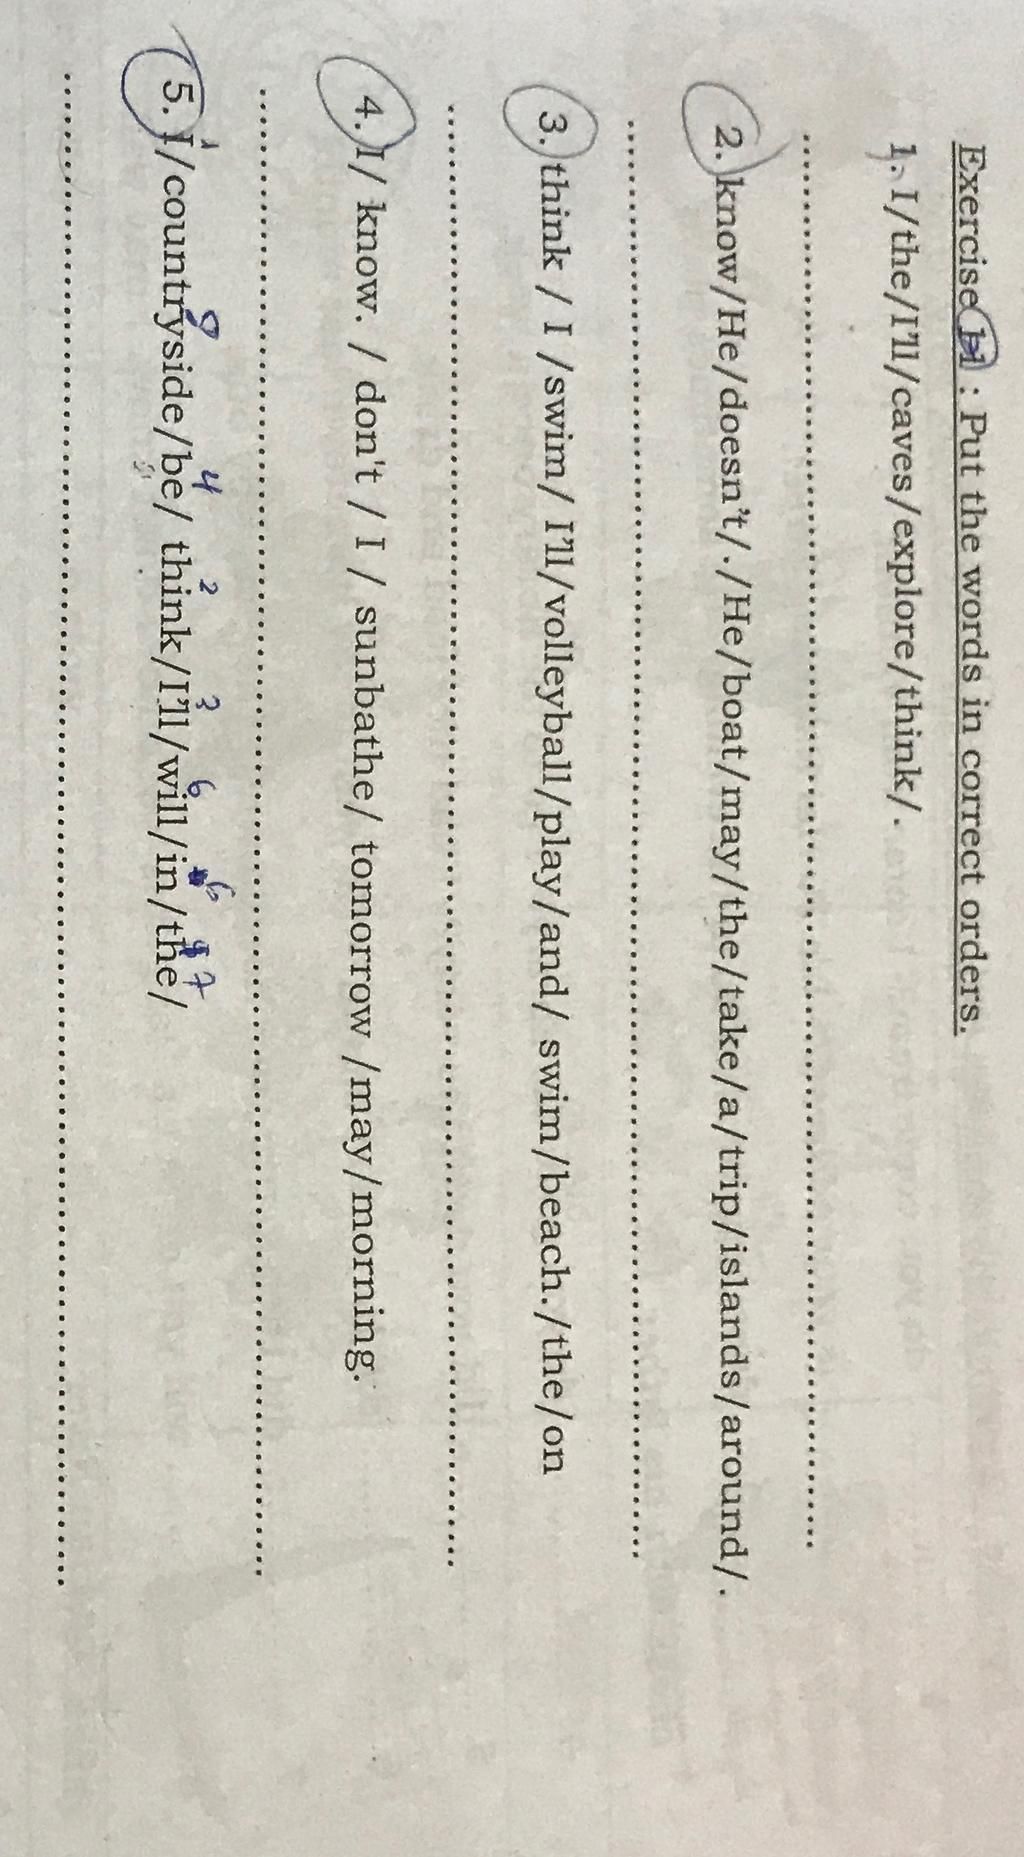 Exercise b1 : Put the words in correct orders.
1. I/the/I'll/caves/explore/think/.
2. know/He/doesn't/./He/boat/may/the/take/a/trip/islands/around/.
3. think / I /swim/ I'll/volleyball/play/and/ swim/beach./the/on
4. I/ know. / don't / I / sunbathe/ tomorrow /may/morning.
1 8 4 2 3 6 6 7
5. I/countryside/be/ think/I'll/will/in/the/